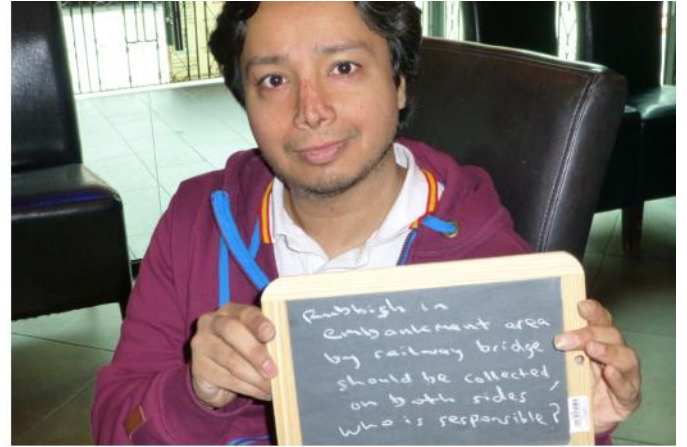 Rubbish in
embankment area
by railway bridge
should be collected,
on both sides
who is responsible?